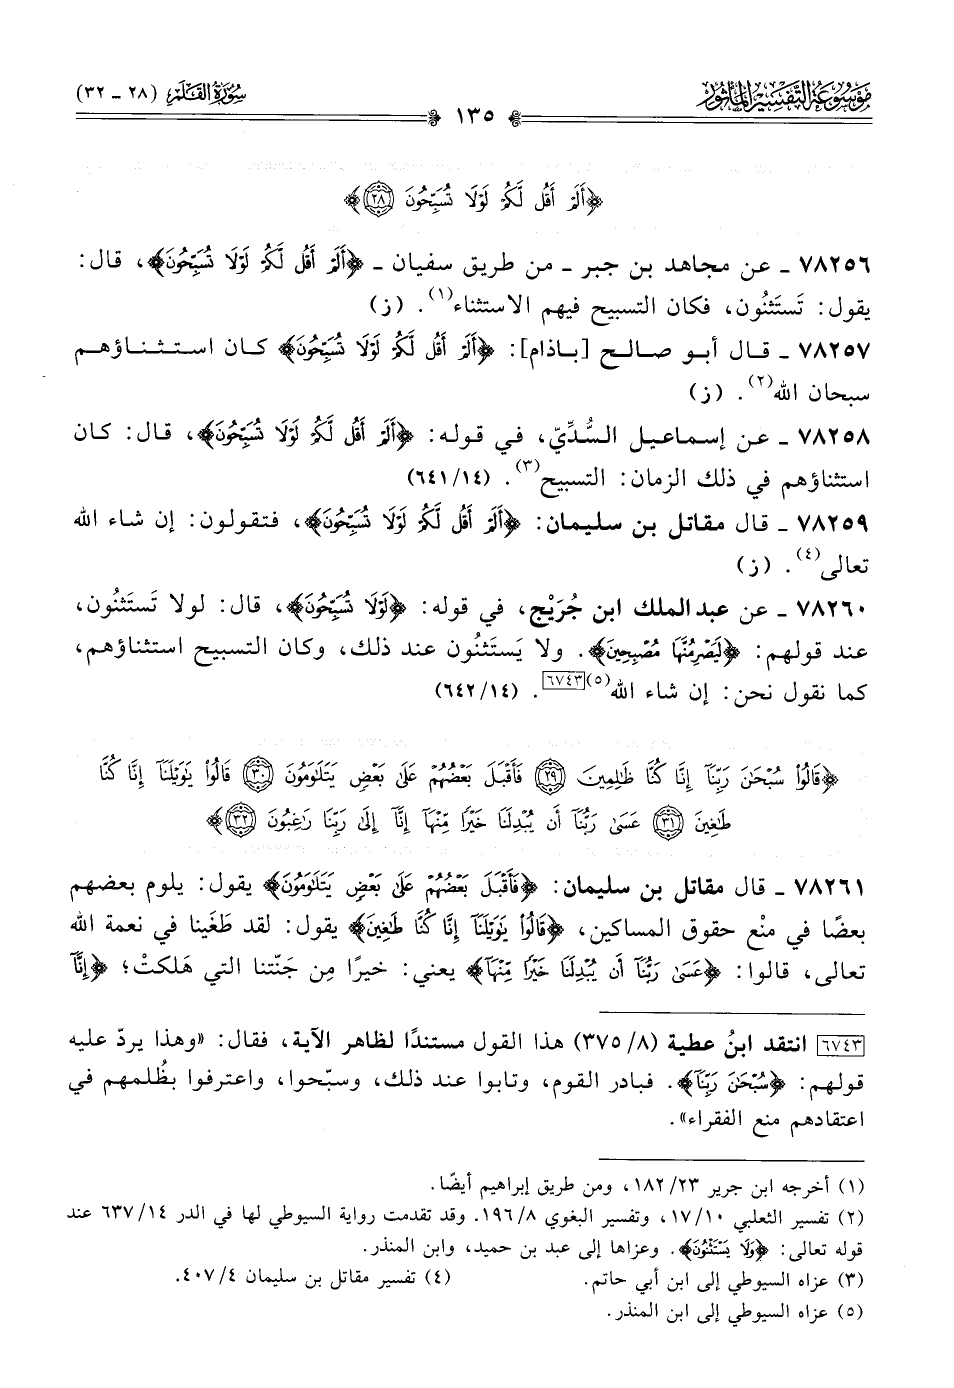 موسوعة التفسير المأثور
سورة القلم (٢٨ - ٣٢)
١٣٥
﴿أَلَمْ أَقُل لَّكُمْ لَوْلَا تُسَبِّحُونَ ٢٨﴾
٧٨٢٥٦ - عن مجاهد بن جبر - من طريق سفيان - ﴿أَلَمْ أَقُل لَّكُمْ لَوْلَا تُسَبِّحُونَ﴾، قال:
يقول: تَستَثنُون، فكان التسبيح فيهم الاستثناء(١). (ز)
٧٨٢٥٧ - قال أبو صالح [باذام]: ﴿أَلَمْ أَقُل لَّكُمْ لَوْلَا تُسَبِّحُونَ﴾ كان استثناؤهم
سبحان الله(٢). (ز)
٧٨٢٥٨ - عن إسماعيل السُّدِّيّ، في قوله: ﴿أَلَمْ أَقُل لَّكُمْ لَوْلَا تُسَبِّحُونَ﴾، قال: كان
استثناؤهم في ذلك الزمان: التسبيح(٣). (٦٤١/١٤)
٧٨٢٥٩ - قال مقاتل بن سليمان: ﴿أَلَمْ أَقُل لَّكُمْ لَوْلَا تُسَبِّحُونَ﴾، فتقولون: إن شاء الله
تعالى(٤). (ز)
٧٨٢٦٠ - عن عبد الملك ابن جُرَيْج، في قوله: ﴿لَوْلَا تُسَبِّحُونَ﴾، قال: لولا تَستَثنُون،
عند قولهم: ﴿لَيَصْرِمُنَّهَا مُصْبِحِينَ﴾. ولا يَستَثنُون عند ذلك، وكان التسبيح استثناؤهم،
كما نقول نحن: إن شاء الله(٥)[٦٧٤٣]. (٦٤٢/١٤)
﴿قَالُوا۟ سُبْحَـٰنَ رَبِّنَآ إِنَّا كُنَّا ظَـٰلِمِينَ ٢٩ فَأَقْبَلَ بَعْضُهُمْ عَلَىٰ بَعْضٍ يَتَلَـٰوَمُونَ ٣٠ قَالُوا۟ يَـٰوَيْلَنَآ إِنَّا كُنَّا
طَـٰغِينَ ٣١ عَسَىٰ رَبُّنَآ أَن يُبْدِلَنَا خَيْرًا مِّنْهَآ إِنَّآ إِلَىٰ رَبِّنَا رَٰغِبُونَ ٣٢﴾
٧٨٢٦١ - قال مقاتل بن سليمان: ﴿فَأَقْبَلَ بَعْضُهُمْ عَلَىٰ بَعْضٍ يَتَلَـٰوَمُونَ﴾ يقول: يلوم بعضهم
بعضًا في منْع حقوق المساكين، ﴿قَالُوا۟ يَـٰوَيْلَنَآ إِنَّا كُنَّا طَـٰغِينَ﴾ يقول: لقد طَغَينا في نعمة الله
تعالى، قالوا: ﴿عَسَىٰ رَبُّنَآ أَن يُبْدِلَنَا خَيْرًا مِّنْهَآ﴾ يعني: خيرًا مِن جَنّتنا التي هَلكتْ؛ ﴿إِنَّآ
[٦٧٤٣] انتقد ابنُ عطية (٣٧٥/٨) هذا القول مستندًا لظاهر الآية، فقال: «وهذا يردّ عليه
قولهم: ﴿سُبْحَـٰنَ رَبِّنَآ﴾. فبادر القوم، وتابوا عند ذلك، وسبّحوا، واعترفوا بظُلمهم في
اعتقادهم منع الفقراء».
(١) أخرجه ابن جرير ١٨٢/٢٣، ومن طريق إبراهيم أيضًا.
(٢) تفسير الثعلبي ١٧/١٠، وتفسير البغوي ١٩٦/٨. وقد تقدمت رواية السيوطي لها في الدر ٦٣٧/١٤ عند
قوله تعالى: ﴿وَلَا يَسْتَثْنُونَ﴾. وعزاها إلى عبد بن حميد، وابن المنذر.
(٣) عزاه السيوطي إلى ابن أبي حاتم. (٤) تفسير مقاتل بن سليمان ٤٠٧/٤.
(٥) عزاه السيوطي إلى ابن المنذر.